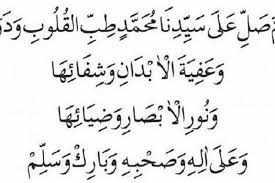 صَلِّ عَلَى سَيِّدِنَا مُحَمَّدٍ طِبِّ القُلُوبِ وَدَوَ
وَعَفِيَةِ الْاَبْدَانِ وَشِفَائِهَا
وَنُورِ الْاَبْصَارِ وَضِيَائِهَا
وَعَلَى اٰلِهِ وَصَحْبِهِ وَبَارِكْ وَسَلِّمْ